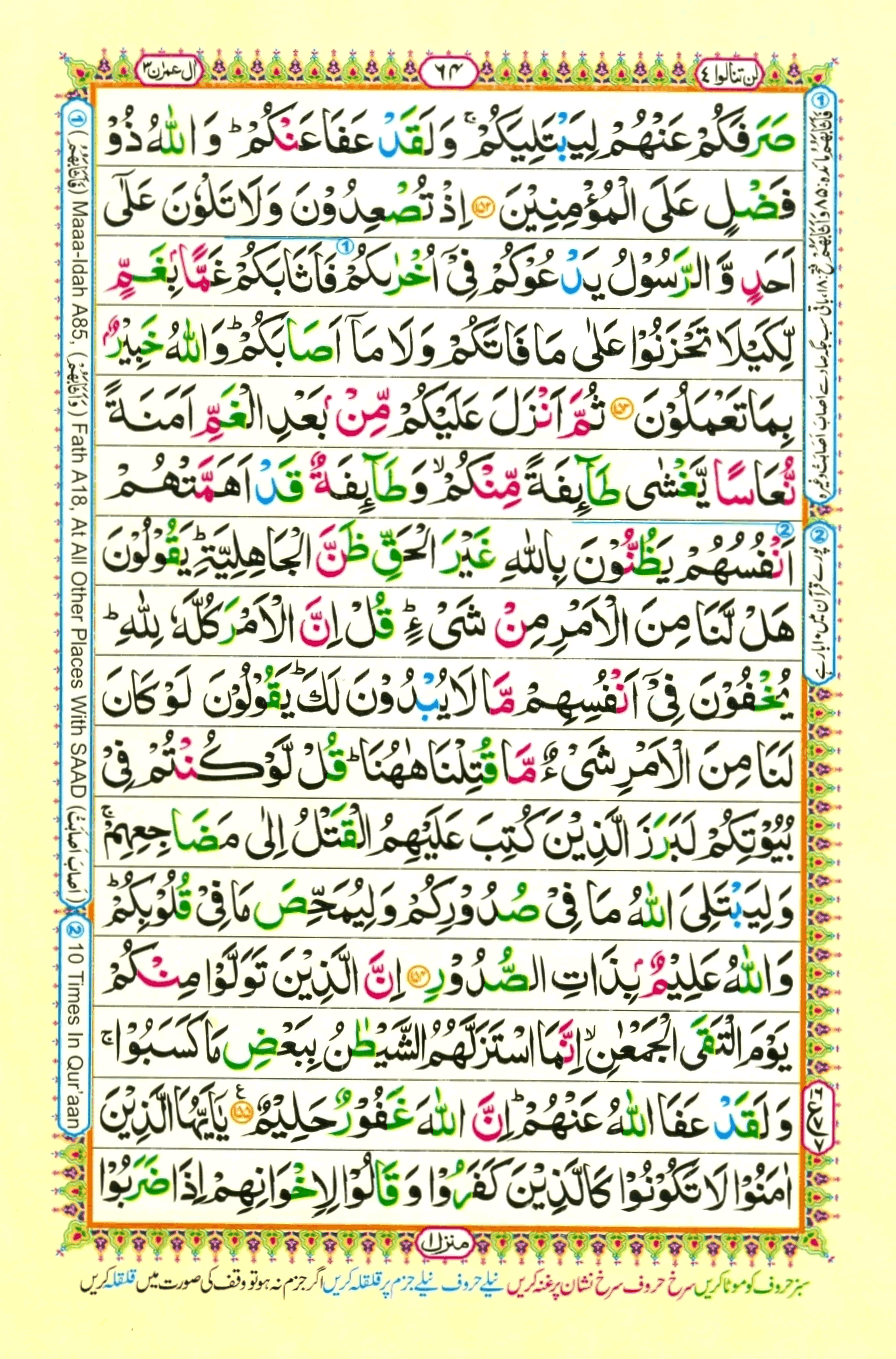 لن تنالوا ٤
٦٤
اٰل عمرٰن ٣
صَرَفَكُمْ عَنْهُمْ لِيَبْتَلِيَكُمْ ۚ وَلَقَدْ عَفَا عَنْكُمْ ؕ وَاللّٰهُ ذُوْ
فَضْلٍ عَلَى الْمُؤْمِنِيْنَ ﴿۱۵۲﴾ اِذْ تُصْعِدُوْنَ وَلَا تَلْوٗنَ عَلٰٓى
اَحَدٍ وَّالرَّسُوْلُ يَدْعُوْكُمْ فِىْۤ اُخْرٰىكُمْ فَاَثَابَكُمْ غَمًّاۢ بِغَمٍّ
لِّكَيْلَا تَحْزَنُوْا عَلٰى مَا فَاتَكُمْ وَلَا مَاۤ اَصَابَكُمْ ؕ وَاللّٰهُ خَبِيْرٌۢ
بِمَا تَعْمَلُوْنَ ﴿۱۵۳﴾ ثُمَّ اَنْزَلَ عَلَيْكُمْ مِّنْۢ بَعْدِ الْغَمِّ اَمَنَةً
نُّعَاسًا يَّغْشٰى طَآئِفَةً مِّنْكُمْ ۙ وَطَآئِفَةٌ قَدْ اَهَمَّتْهُمْ
اَنْفُسُهُمْ يَظُنُّوْنَ بِاللّٰهِ غَيْرَ الْحَقِّ ظَنَّ الْجَاهِلِيَّةِ ؕ يَقُوْلُوْنَ
هَلْ لَّنَا مِنَ الْاَمْرِ مِنْ شَىْءٍ ؕ قُلْ اِنَّ الْاَمْرَ كُلَّهٗ لِلّٰهِ ؕ
يُخْفُوْنَ فِىْۤ اَنْفُسِهِمْ مَّا لَا يُبْدُوْنَ لَكَ ؕ يَقُوْلُوْنَ لَوْ كَانَ
لَنَا مِنَ الْاَمْرِ شَىْءٌ مَّا قُتِلْنَا هٰهُنَا ؕ قُلْ لَّوْ كُنْتُمْ فِىْ
بُيُوْتِكُمْ لَبَرَزَ الَّذِيْنَ كُتِبَ عَلَيْهِمُ الْقَتْلُ اِلٰى مَضَاجِعِهِمْ ۚ
وَلِيَبْتَلِىَ اللّٰهُ مَا فِىْ صُدُوْرِكُمْ وَلِيُمَحِّصَ مَا فِىْ قُلُوْبِكُمْ ؕ
وَاللّٰهُ عَلِيْمٌۢ بِذَاتِ الصُّدُوْرِ ﴿۱۵۴﴾ اِنَّ الَّذِيْنَ تَوَلَّوْا مِنْكُمْ
يَوْمَ الْتَقَى الْجَمْعٰنِ ۙ اِنَّمَا اسْتَزَلَّهُمُ الشَّيْطٰنُ بِبَعْضِ مَا كَسَبُوْا ۚ
وَلَقَدْ عَفَا اللّٰهُ عَنْهُمْ ؕ اِنَّ اللّٰهَ غَفُوْرٌ حَلِيْمٌ ﴿۱۵۵﴾ ع يٰۤاَيُّهَا الَّذِيْنَ
اٰمَنُوْا لَا تَكُوْنُوْا كَالَّذِيْنَ كَفَرُوْا وَقَالُوْا لِاِخْوَانِهِمْ اِذَا ضَرَبُوْا
① (فَاَثَابَهُمُ) Maaa-Idah A85, (وَاَثَابَهُمْ) Fath A18, At All Other Places With SAAD (اَصَابَ اَصَابَتْ)
② 10 Times In Qur'aan
② پورے قرآن میں ۱۰ بار ہے
منزل ۱
سبز حروف کو موٹا کریں سرخ حروف سرخ نشان پر غنہ کریں نیلے حروف نیلے جزم پر قلقلہ کریں اگر جزم نہ ہو تو وقف کی صورت میں قلقلہ کریں